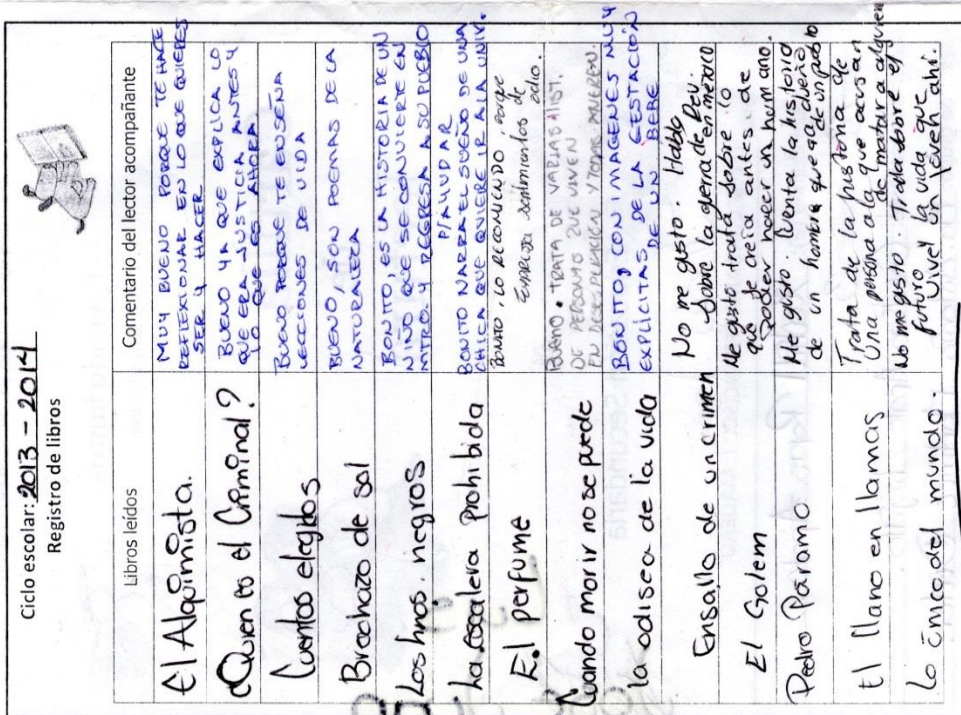 Ciclo escolar: 2013 - 2014
Registro de libros
Libros leídos
Comentario del lector acompañante
El Alquimista.
MUY BUENO PORQUE TE HACE
REFLEXIONAR EN LO QUE QUIERES
SER Y HACER
¿Quien es el Criminal?
BUENO YA QUE EXPLICA LO
QUE ERA JUSTICIA ANTES Y
LO QUE ES AHORA
Cuentos elegidos
BUENO PORQUE TE ENSEÑA
LECCIONES DE VIDA
Brochazo de sal
BUENO, SON POEMAS DE LA
NATURALEZA
Los hnos. negros
BONITO, ES LA HISTORIA DE UN
NIÑO QUE SE CONVIERTE EN
Y REGRESA A SU PUEBLO
P/AYUDAR
La prohibida
BONITO NARRA EL SUEÑO DE UNA
CHICA QUE QUIERE IR A LA UNIV.
El perfume
BONITO. LO RECOMIENDO, porque
Expresa sentimientos de
odio.
Cuando morir no se puede
BUENO. TRATA DE VARIAS HIST.
DE PERSONAS QUE VIVEN
EN Y TODAS MUEREN.
La odisea de la vida
BONITO, CON IMAGENES MUY
EXPLICITAS DE LA GESTACIÓN
DE UN BEBE
Ensallo de un crimen
No me gusto. Habla
Sobre la gerra de Rev.
en mexico
El Golem
Me gusto trata sobre lo
que se creia antes. de
poder hacer un humano.
Pedro Páramo
Me gusto. Cuenta la historia
de un hombre que era dueño
de un pueblo
El llano en llamas
Trata de la historia de
Una persona a la que acusan
de matar a alguien
Lo único del mundo.
No me gusto. Trata sobre el
futuro y la vida que
vive un joven ahi.